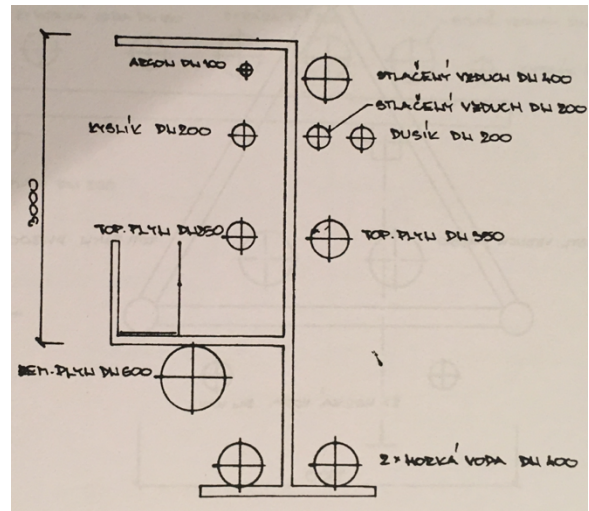 ARGON DN 100
STLAČENÝ VZDUCH DN 400
STLAČENÝ VZDUCH DN 200
KYSLÍK DN 200
DUSÍK DN 200
3000
TOP. PLYN DN 250
TOP. PLYN DN 350
ZEM. PLYN DN 600
2 × HORKÁ VODA DN 400